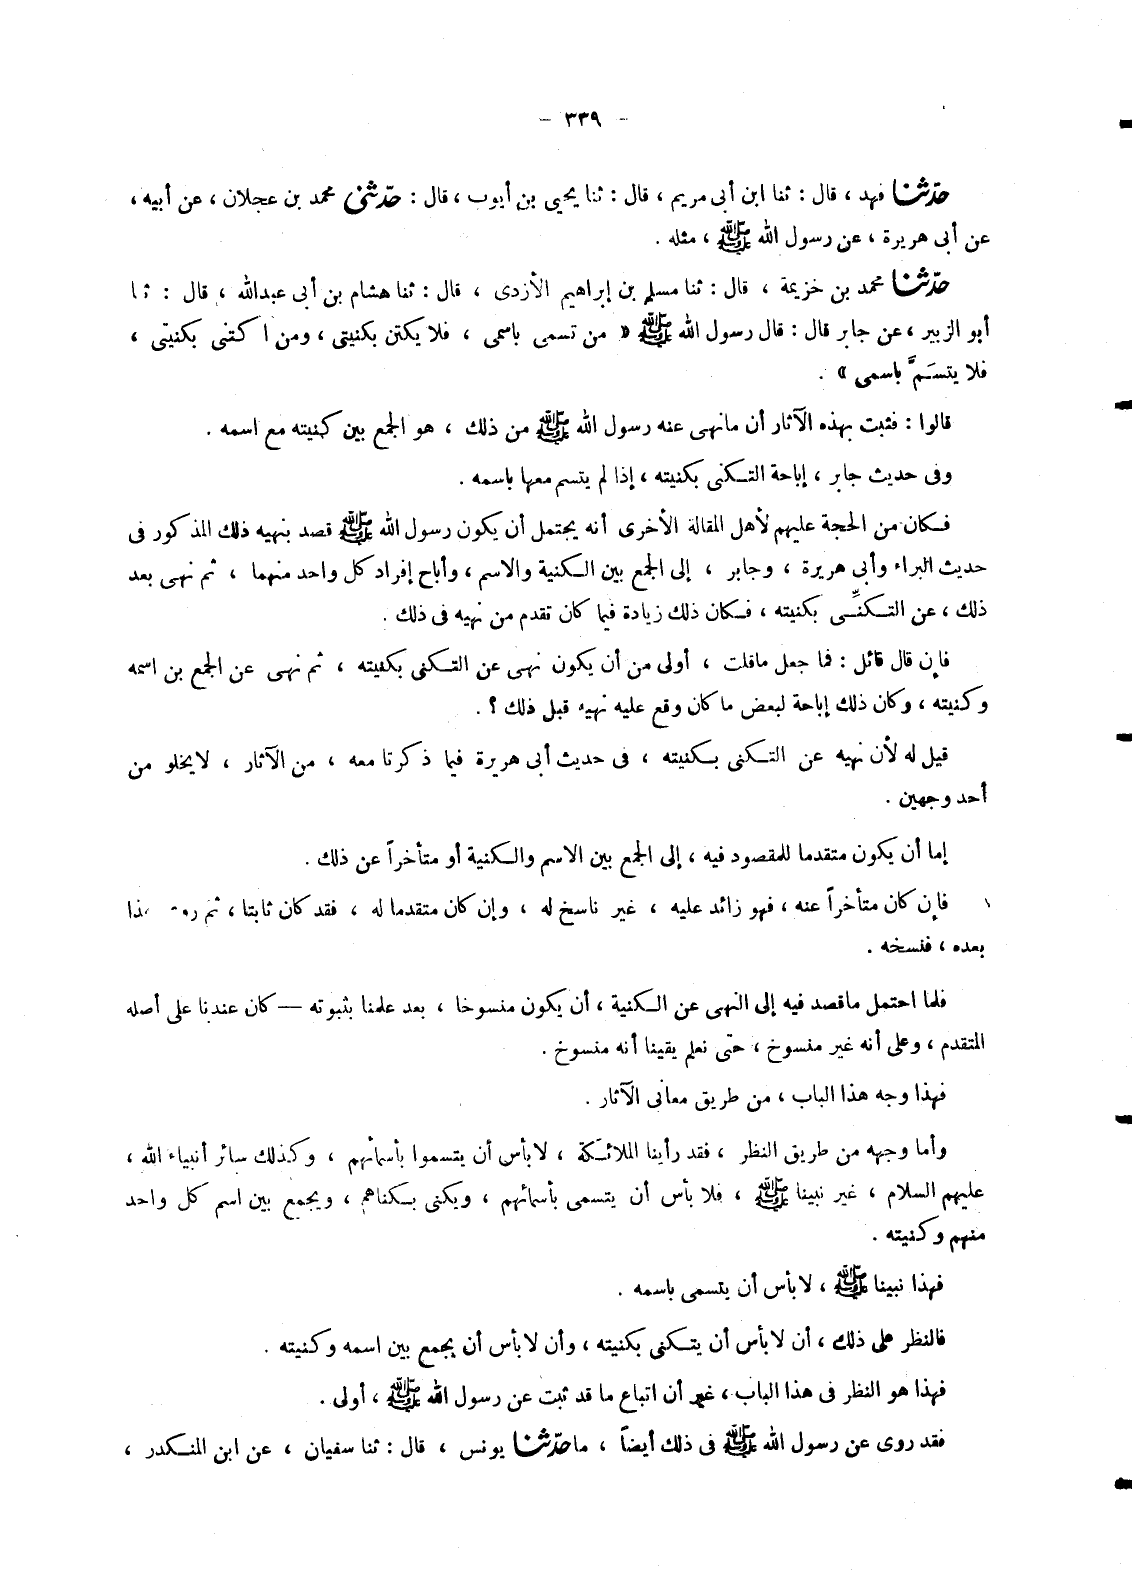 - ٣٣٩ -
حدّثنا فهد ، قال : ثنا ابن أبى مريم ، قال : ثنا يحيى بن أيوب ، قال : حدّثنى محمد بن عجلان ، عن أبيه ،
عن أبى هريرة ، عن رسول الله ﷺ ، مثله .
حدّثنا محمد بن خزيمة ، قال : ثنا مسلم بن إبراهيم الأزدى ، قال : ثنا هشام بن أبى عبدالله ، قال : ثنا
أبو الزبير ، عن جابر قال : قال رسول الله ﷺ « من تسمى باسمى ، فلا يكتن بكنيتى ، ومن اكتنى بكنيتى ،
فلا يتسَمَّ باسمى » .
قالوا : فثبت بهذه الآثار أن مانهى عنه رسول الله ﷺ من ذلك ، هو الجمع بين كنيته مع اسمه .
وفى حديث جابر ، إباحة التكنى بكنيته ، إذا لم يتسم معها باسمه .
فكان من الحجة عليهم لأهل المقالة الأخرى أنه يحتمل أن يكون رسول الله ﷺ قصد بنهيه ذلك المذكور فى
حديث البراء وأبى هريرة ، وجابر ، إلى الجمع بين الكنية والاسم ، وأباح إفراد كل واحد منهما ، ثم نهى بعد
ذلك ، عن التكنِّى بكنيته ، فكان ذلك زيادة فيما كان تقدم من نهيه فى ذلك .
فإن قال قائل : فما جعل ماقلت ، أولى من أن يكون نهى عن التكنى بكنيته ، ثم نهى عن الجمع بن اسمه
وكنيته ، وكان ذلك إباحة لبعض ماكان وقع عليه نهيه قبل ذلك ؟ .
قيل له لأن نهيه عن التكنى بكنيته ، فى حديث أبى هريرة فيما ذكرنا معه ، من الآثار ، لايخلو من
أحد وجهين .
إما أن يكون متقدما للمقصود فيه ، إلى الجمع بين الاسم والكنية أو متأخراً عن ذلك .
فإن كان متأخراً عنه ، فهو زائد عليه ، غير ناسخ له ، وإن كان متقدما له ، فقد كان ثابتا ، ثم
بعده ، فنسخه .
فلما احتمل ماقصد فيه إلى النهى عن الكنية ، أن يكون منسوخا ، بعد علمنا بثبوته — كان عندنا على أصله
المتقدم ، وعلى أنه غير منسوخ ، حتى نعلم يقينا أنه منسوخ .
فهذا وجه هذا الباب ، من طريق معانى الآثار .
وأما وجهه من طريق النظر ، فقد رأينا الملائكة ، لابأس أن يتسموا بأسمائهم ، وكذلك سائر أنبياء الله ،
عليهم السلام ، غير نبينا ﷺ ، فلا بأس أن يتسمى بأسمائهم ، ويكنى بكناهم ، ويجمع بين اسم كل واحد
منهم وكنيته .
فهذا نبينا ﷺ ، لابأس أن يتسمى باسمه .
فالنظر على ذلك ، أن لابأس أن يتكنى بكنيته ، وأن لابأس أن يجمع بين اسمه وكنيته .
فهذا هو النظر فى هذا الباب ، غير أن اتباع ما قد ثبت عن رسول الله ﷺ ، أولى .
فقد روى عن رسول الله ﷺ فى ذلك أيضاً ، ماحدّثنا يونس ، قال : ثنا سفيان ، عن ابن المنكدر ،